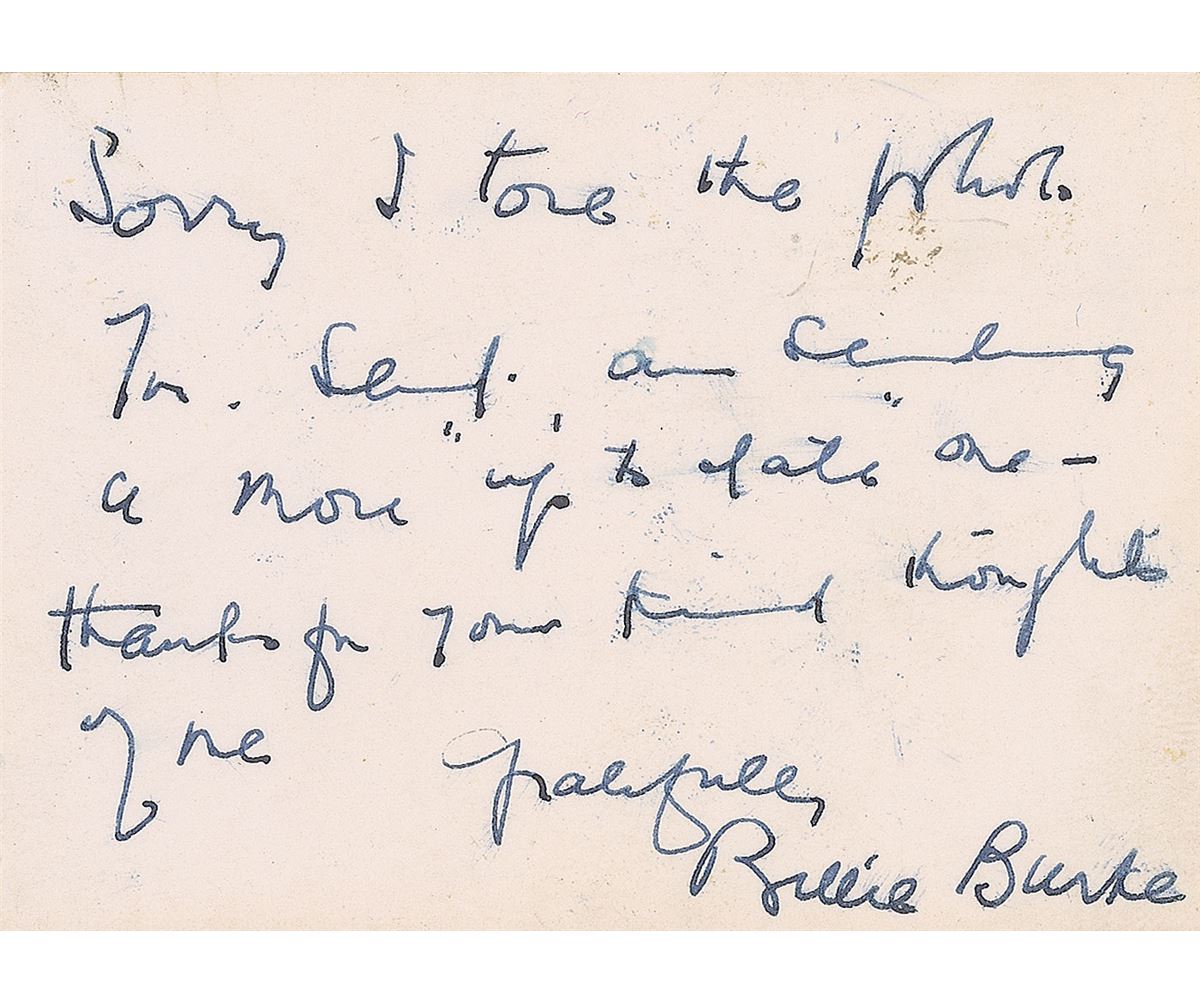 Sorry I tore the photo
You send. am sending
a more "up to date" one -
thanks for your kind thoughts
of me Gratefully
Billie Burke